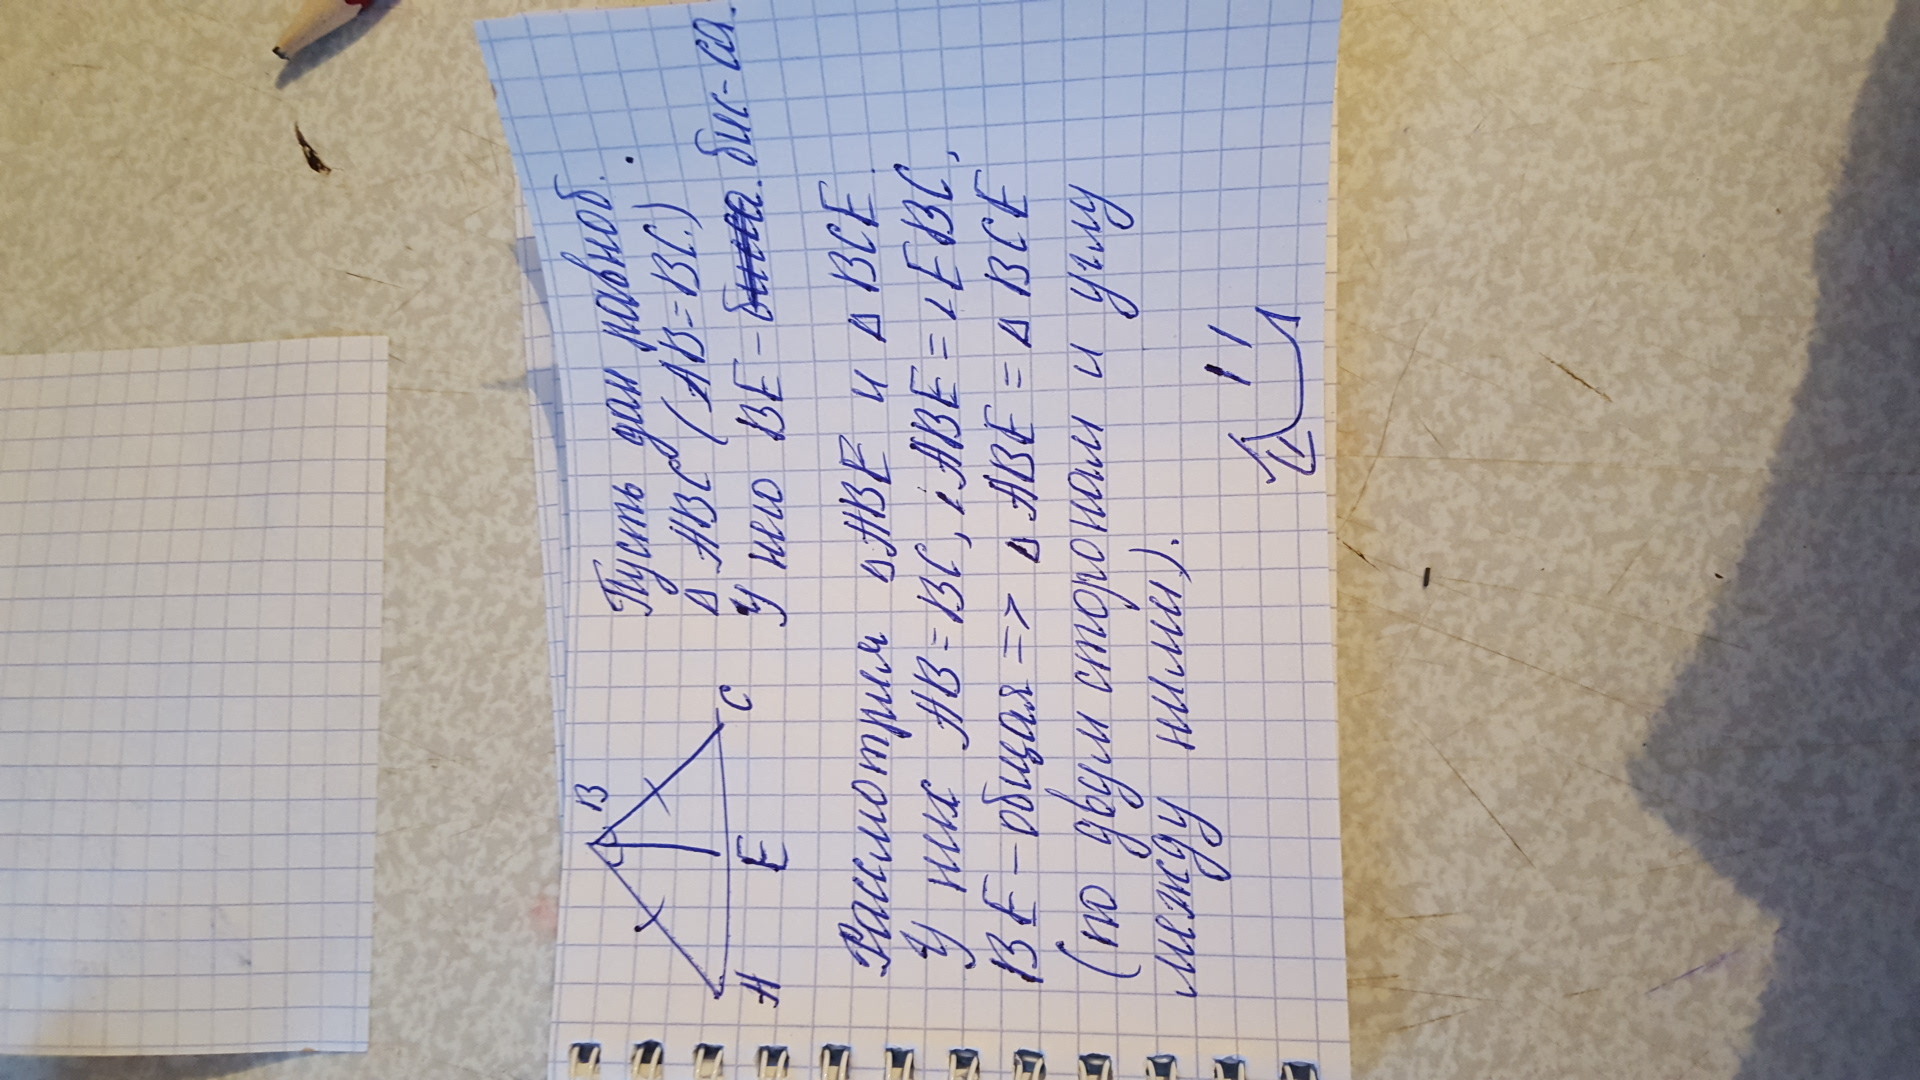 Пусть дан равноб.
Δ ABC (AB=BC.)
У него BE - бис-са.
B
A
E
C
Рассмотрим ΔABE и Δ BCE.
У них AB=BC, ∠ABE=∠EBC,
BE-общая => Δ ABE = Δ BCE
(по двум сторонам и углу
между ними).